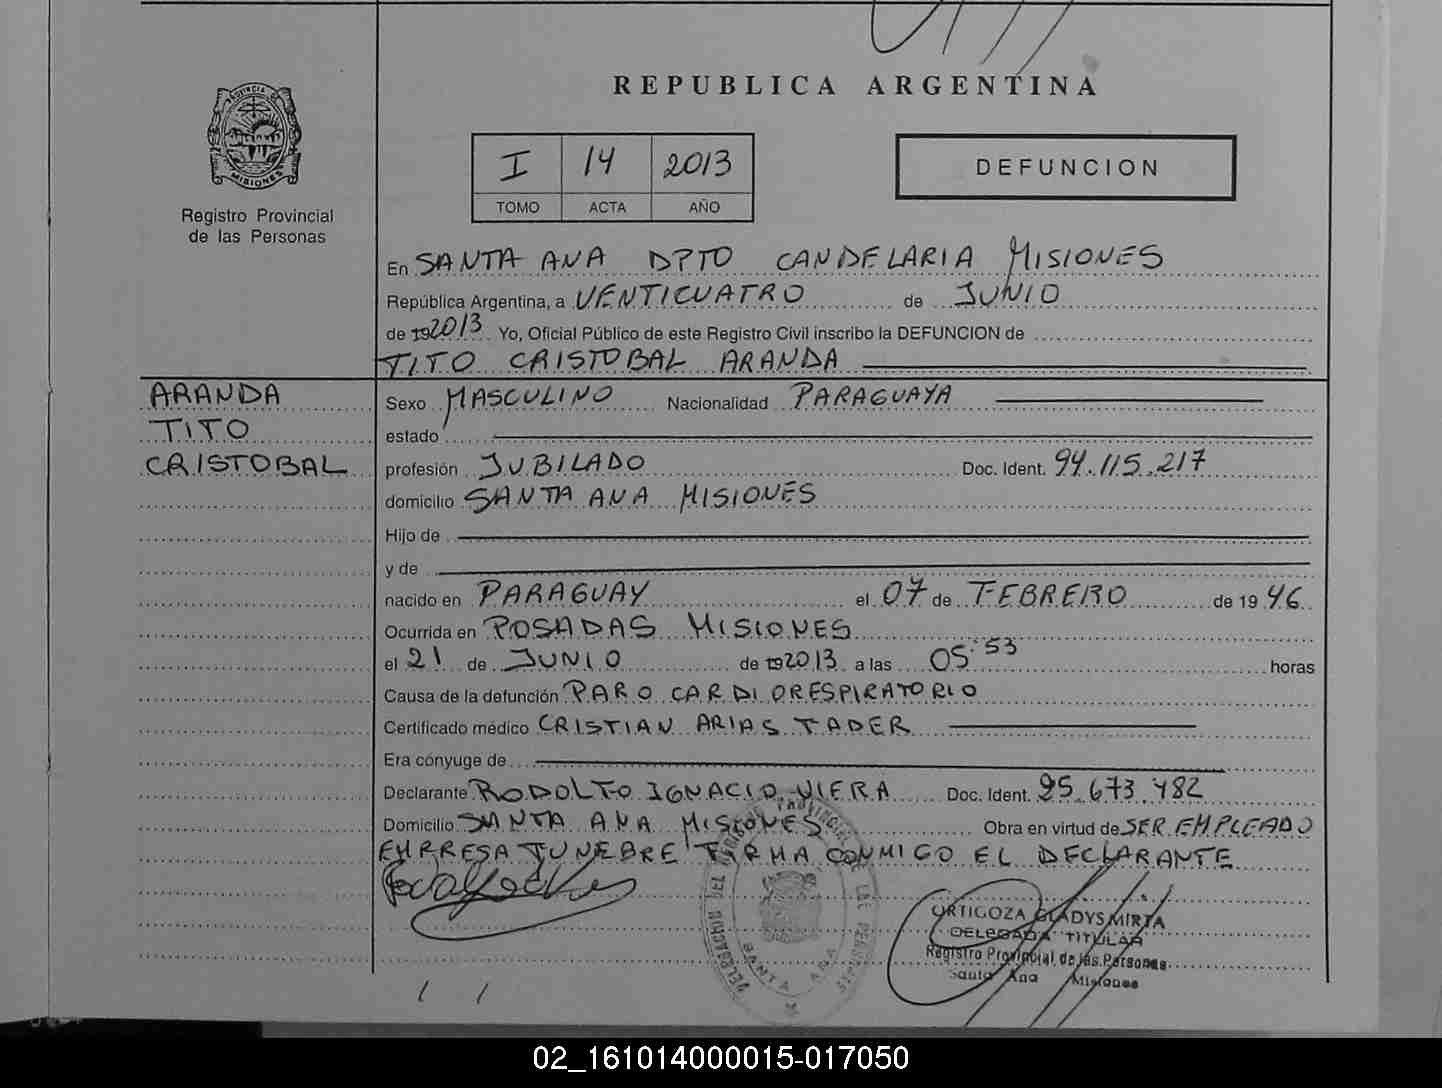 REPUBLICA ARGENTINA
PROVINCIA DE
MISIONES
Registro Provincial
de las Personas
I 14 2013
TOMO ACTA AÑO
DEFUNCION
En SANTA ANA DPTO CANDELARIA MISIONES
República Argentina, a VENTICUATRO de JUNIO
de 192013 Yo, Oficial Público de este Registro Civil inscribo la DEFUNCION de
TITO CRISTOBAL ARANDA
ARANDA
TITO
CRISTOBAL
Sexo MASCULINO Nacionalidad PARAGUAYA
estado
profesión JUBILADO Doc. Ident. 94.115.217
domicilio SANTA ANA MISIONES
Hijo de
y de
nacido en PARAGUAY el 07 de FEBRERO de 19 46
Ocurrida en POSADAS MISIONES
el 21 de JUNIO de 192013 a las 05:53 horas
Causa de la defunción PARO CARDIORESPIRATORIO
Certificado médico CRISTIAN ARIAS TADER
Era cónyuge de
Declarante RODOLFO IGNACIO VIERA Doc. Ident. 95.673.482
Domicilio SANTA ANA MISIONES Obra en virtud de SER EMPLEADO
EMPRESA FUNEBRE FIRMA CONMIGO EL DECLARANTE
SANTA ANA
ORTIGOZA GLADYS MIRTA
DELEGADA TITULAR
Registro Provincial de las Personas
Santa Ana Misiones
02_161014000015-017050